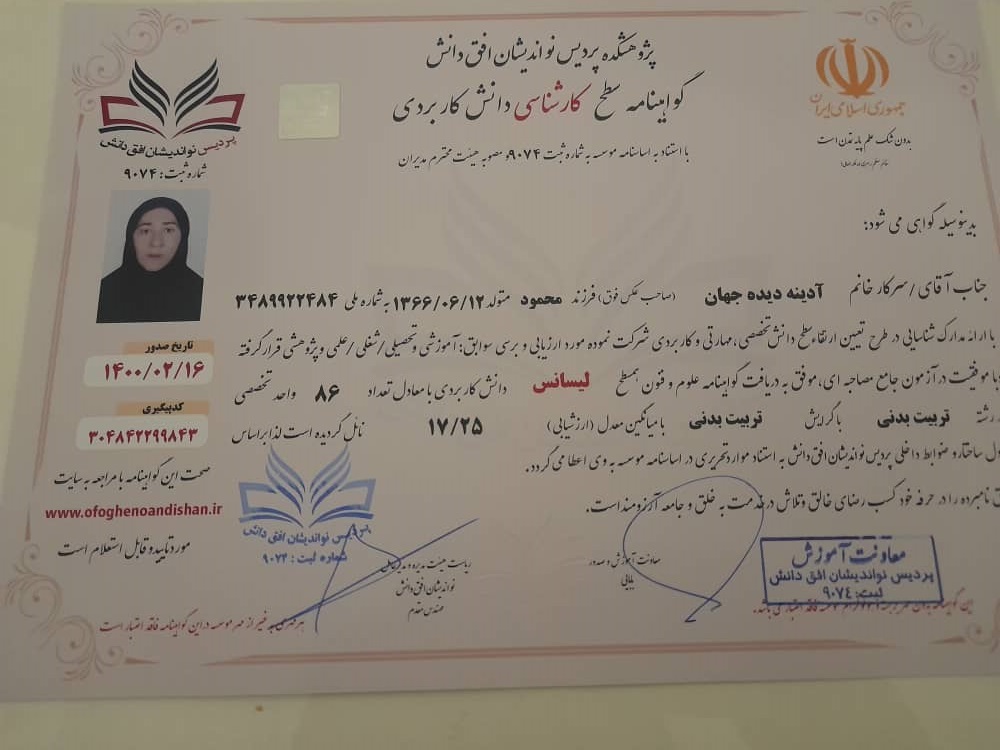 پژوهشکده پردیس نواندیشان افق دانش
گواهینامه سطح کارشناسی دانش کاربردی
با استناد به اساسنامه موسسه به شماره ثبت ۹۰۷۴ و مصوبه هیئت محترم مدیران
جمهوری اسلامی ایران
بدون شک علم پایه تمدن است
پردیس نواندیشان افق دانش
شماره ثبت: ۹۰۷۴
بدینوسیله گواهی می شود:
جناب آقای/سرکار خانم آدینه دیده جهان (صاحب عکس فوق) فرزند محمود متولد ۱۳۶۶/۰۶/۱۲ به شماره ملی ۳۴۸۹۹۲۲۴۸۴
با ارائه مدارک شناسایی در طرح تعیین ارتقاء سطح دانش تخصصی، مهارتی و کاربردی شرکت نموده مورد ارزیابی و بررسی سوابق: آموزشی و تحصیلی/شغلی/علمی و پژوهشی قرار گرفته
با موفقیت در آزمون جامع مصاحبه ای، موفق به دریافت گواهینامه علوم و فنون همسطح لیسانس دانش کاربردی با معادل تعداد ۸۶ واحد تخصصی
رشته تربیت بدنی با گرایش تربیت بدنی با میانگین معدل (ارزشیابی) ۱۷/۲۵ نائل گردیده است لذا براساس
ساختار و ضوابط داخلی پردیس نواندیشان افق دانش به استناد موارد تحریری در اساسنامه موسسه به وی اعطا می گردد.
نامبرده را در حرفه خود کسب رضای خالق و تلاش در خدمت به خلق و جامعه آرزومند است.
تاریخ صدور
۱۴۰۰/۰۲/۱۶
کدپیگیری
۳۰۴۸۴۲۲۹۹۸۴۳
صحت این گواهینامه با مراجعه به سایت
www.ofoghenoandishan.ir
مورد تایید و قابل استعلام است
پردیس نواندیشان افق دانش
شماره ثبت: ۹۰۷۴
ریاست هیئت مدیره و مدیرعامل
نواندیشان افق دانش
معاونت آموزش و صدور
معاونت آموزش
پردیس نواندیشان افق دانش
ثبت: ۹۰۷۴
هر مهری به غیر از مهر موسسه در این گواهینامه فاقد اعتبار است